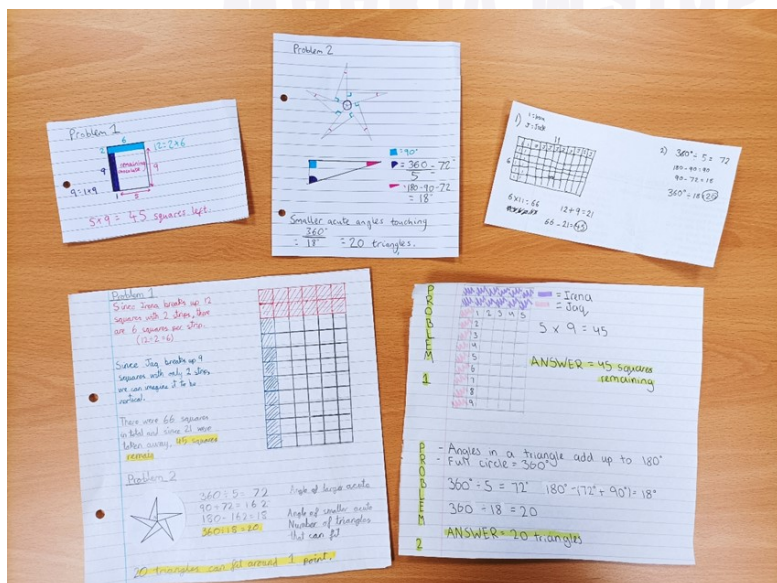 Problem 1
6
2
12=2×6
9
remaining
9
9=1×9
1
5
5×9 = 45 squares left.
Problem 2
=90°
= 360 = 72°
5
=180-90-72
= 18°
Smaller acute angles touching
= 360°
18°
= 20 triangles.
1)
11
6
6×11=66
12+9=21
66-21=45
2) 360° ÷ 5 = 72
180-90=90
90-72=18
360° ÷ 18 = 20
Problem 1
Since Irena breaks up 12
squares with 2 strips, there
are 6 squares per strip.
(12÷2=6)
Since Jaq breaks up 9
squares with only 1 strip
we can imagine it to be
vertical.
There were 66 squares
in total and since 21 were
taken away, 45 squares
remain
Problem 2
360÷5= 72 Angle of larger acute
90+72=162
180-162=18 Angle of smaller acute
360÷18=20 Number of triangles
that can fit
20 triangles can fit around 1 point.
PROBLEM 1
= Irena
= Jaq
1 2 3 4 5
2
3
4
5
6
7
8
9
5 × 9 = 45
ANSWER = 45 squares
remaining
PROBLEM 2
- Angles in a triangle add up to 180°
- Full circle = 360°
360° ÷ 5 = 72° 180° -(72° + 90°)= 18°
360 ÷ 18 = 20
ANSWER = 20 triangles